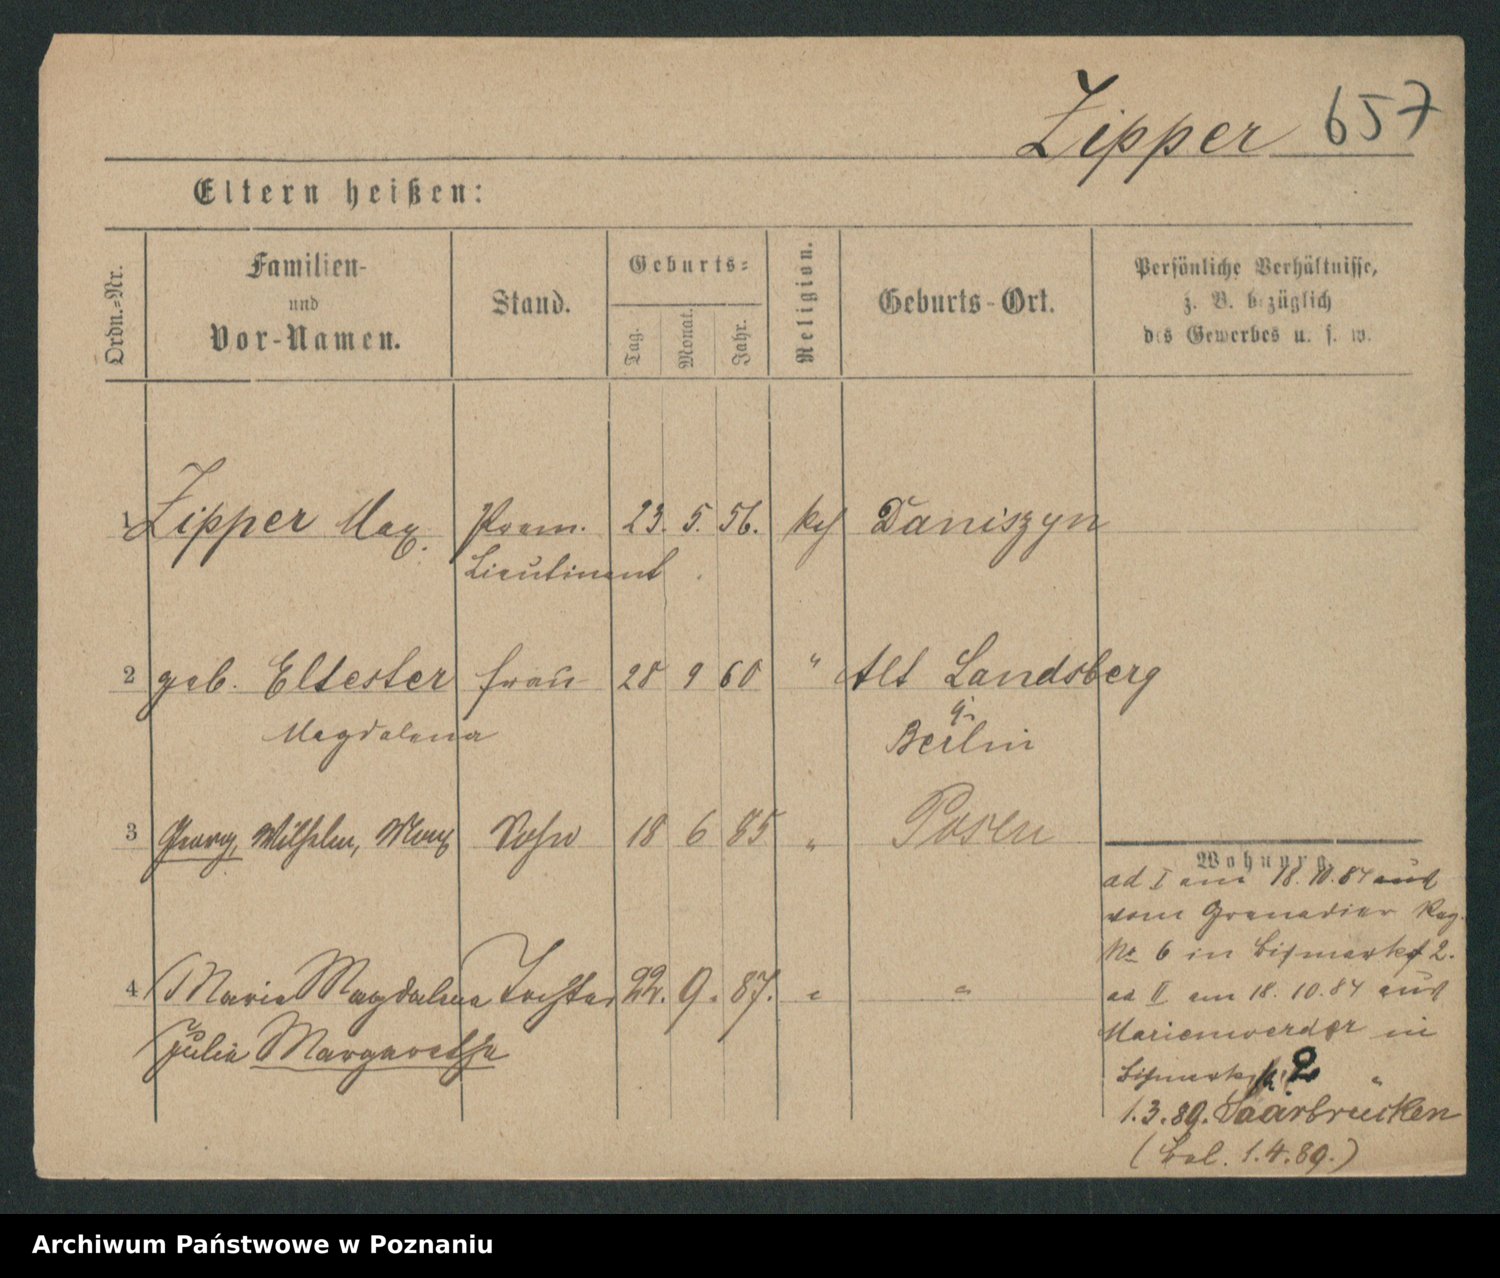 Zipper 657
Eltern heißen:
Ordn.-Nr.
Familien-
und
Vor-Namen.
Stand.
Geburts-
Tag.
Monat.
Jahr.
Religion.
Geburts-Ort.
Persönliche Verhältnisse,
z. B. bezüglich
des Gewerbes u. s. w.
1 Zipper Max. Prem. 23. 5. 56. Daniszyn
Lieutinant
2 geb. Eltester Frau 28 9 60 " Alt Landsberg
Magdalena Berlin
3 Georg, Wilhelm, Max Sohn 18 6 85 " Posen
4 Marie Magdalena Tochter 22. 9. 87. " "
Julie Margarethe
Wohnung.
ad I am 18. 10. 84 aus
vom Grenadier Reg.
No 6 in Bismarkst 2.
ad II am 18. 10. 84 aus
Marienwerder in
Bismarkst 2 "
1.3.89. Saarbrücken
( 1.4.89.)
Archiwum Państwowe w Poznaniu